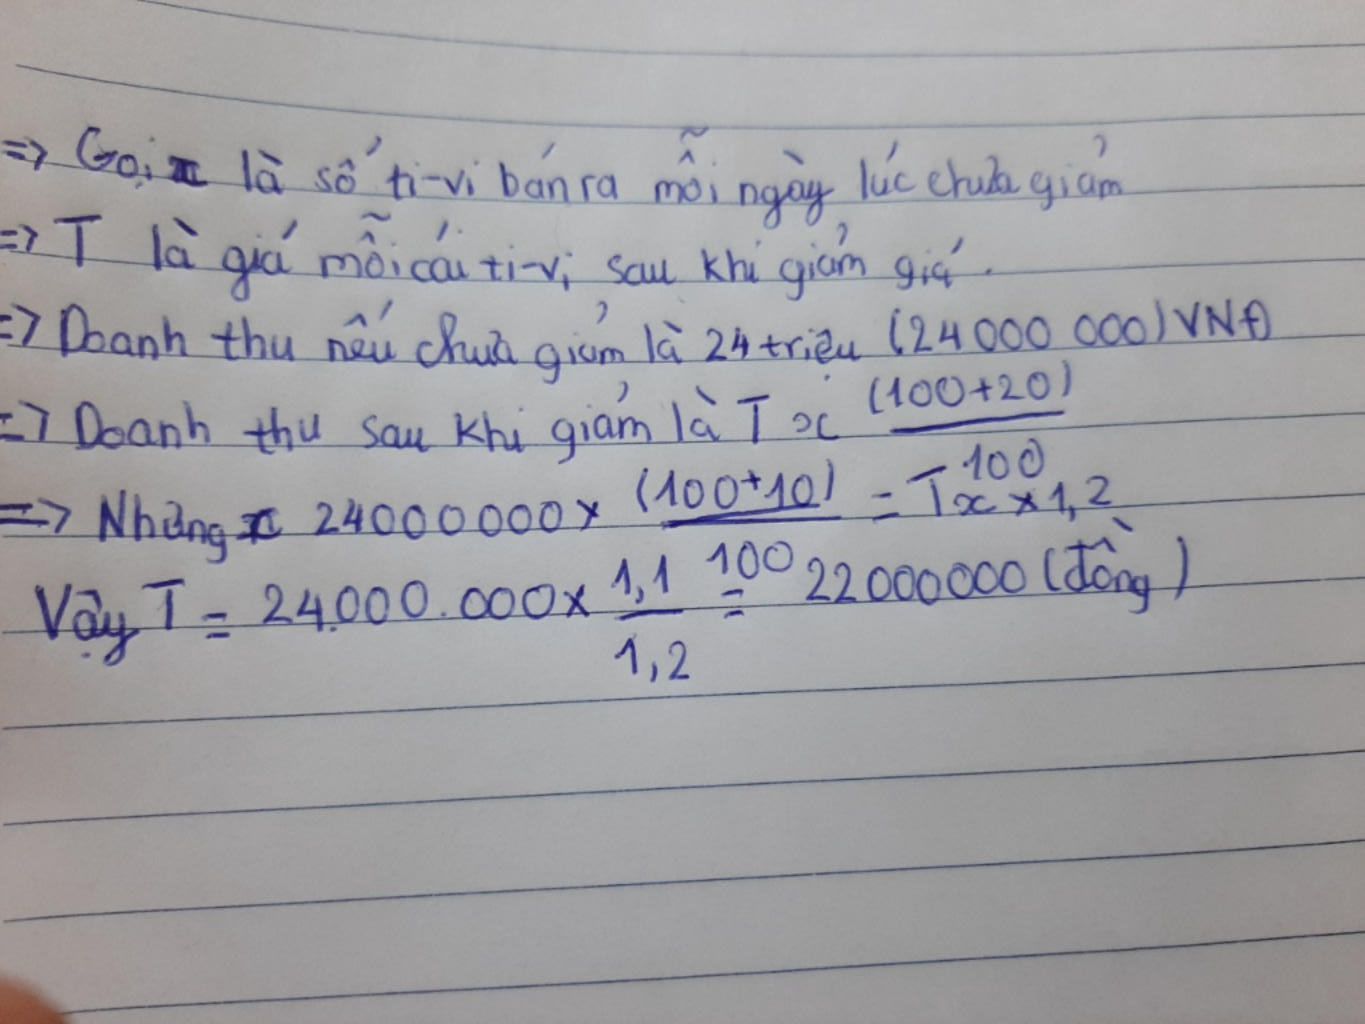 => Gọi x là số ti-vi bán ra mỗi ngày lúc chưa giảm
=> T là giá mỗi cái ti-vi sau khi giảm giá.
=> Doanh thu nếu chưa giảm là 24 triệu (24000 000) VNĐ
=> Doanh thu sau khi giảm là Tx (100+20)/100
=> Nhưng x 24000000 x (100+10)/100 = Tx x 1,2
Vậy T = 24.000.000 x 1,1/1,2 = 22000000 (đồng)